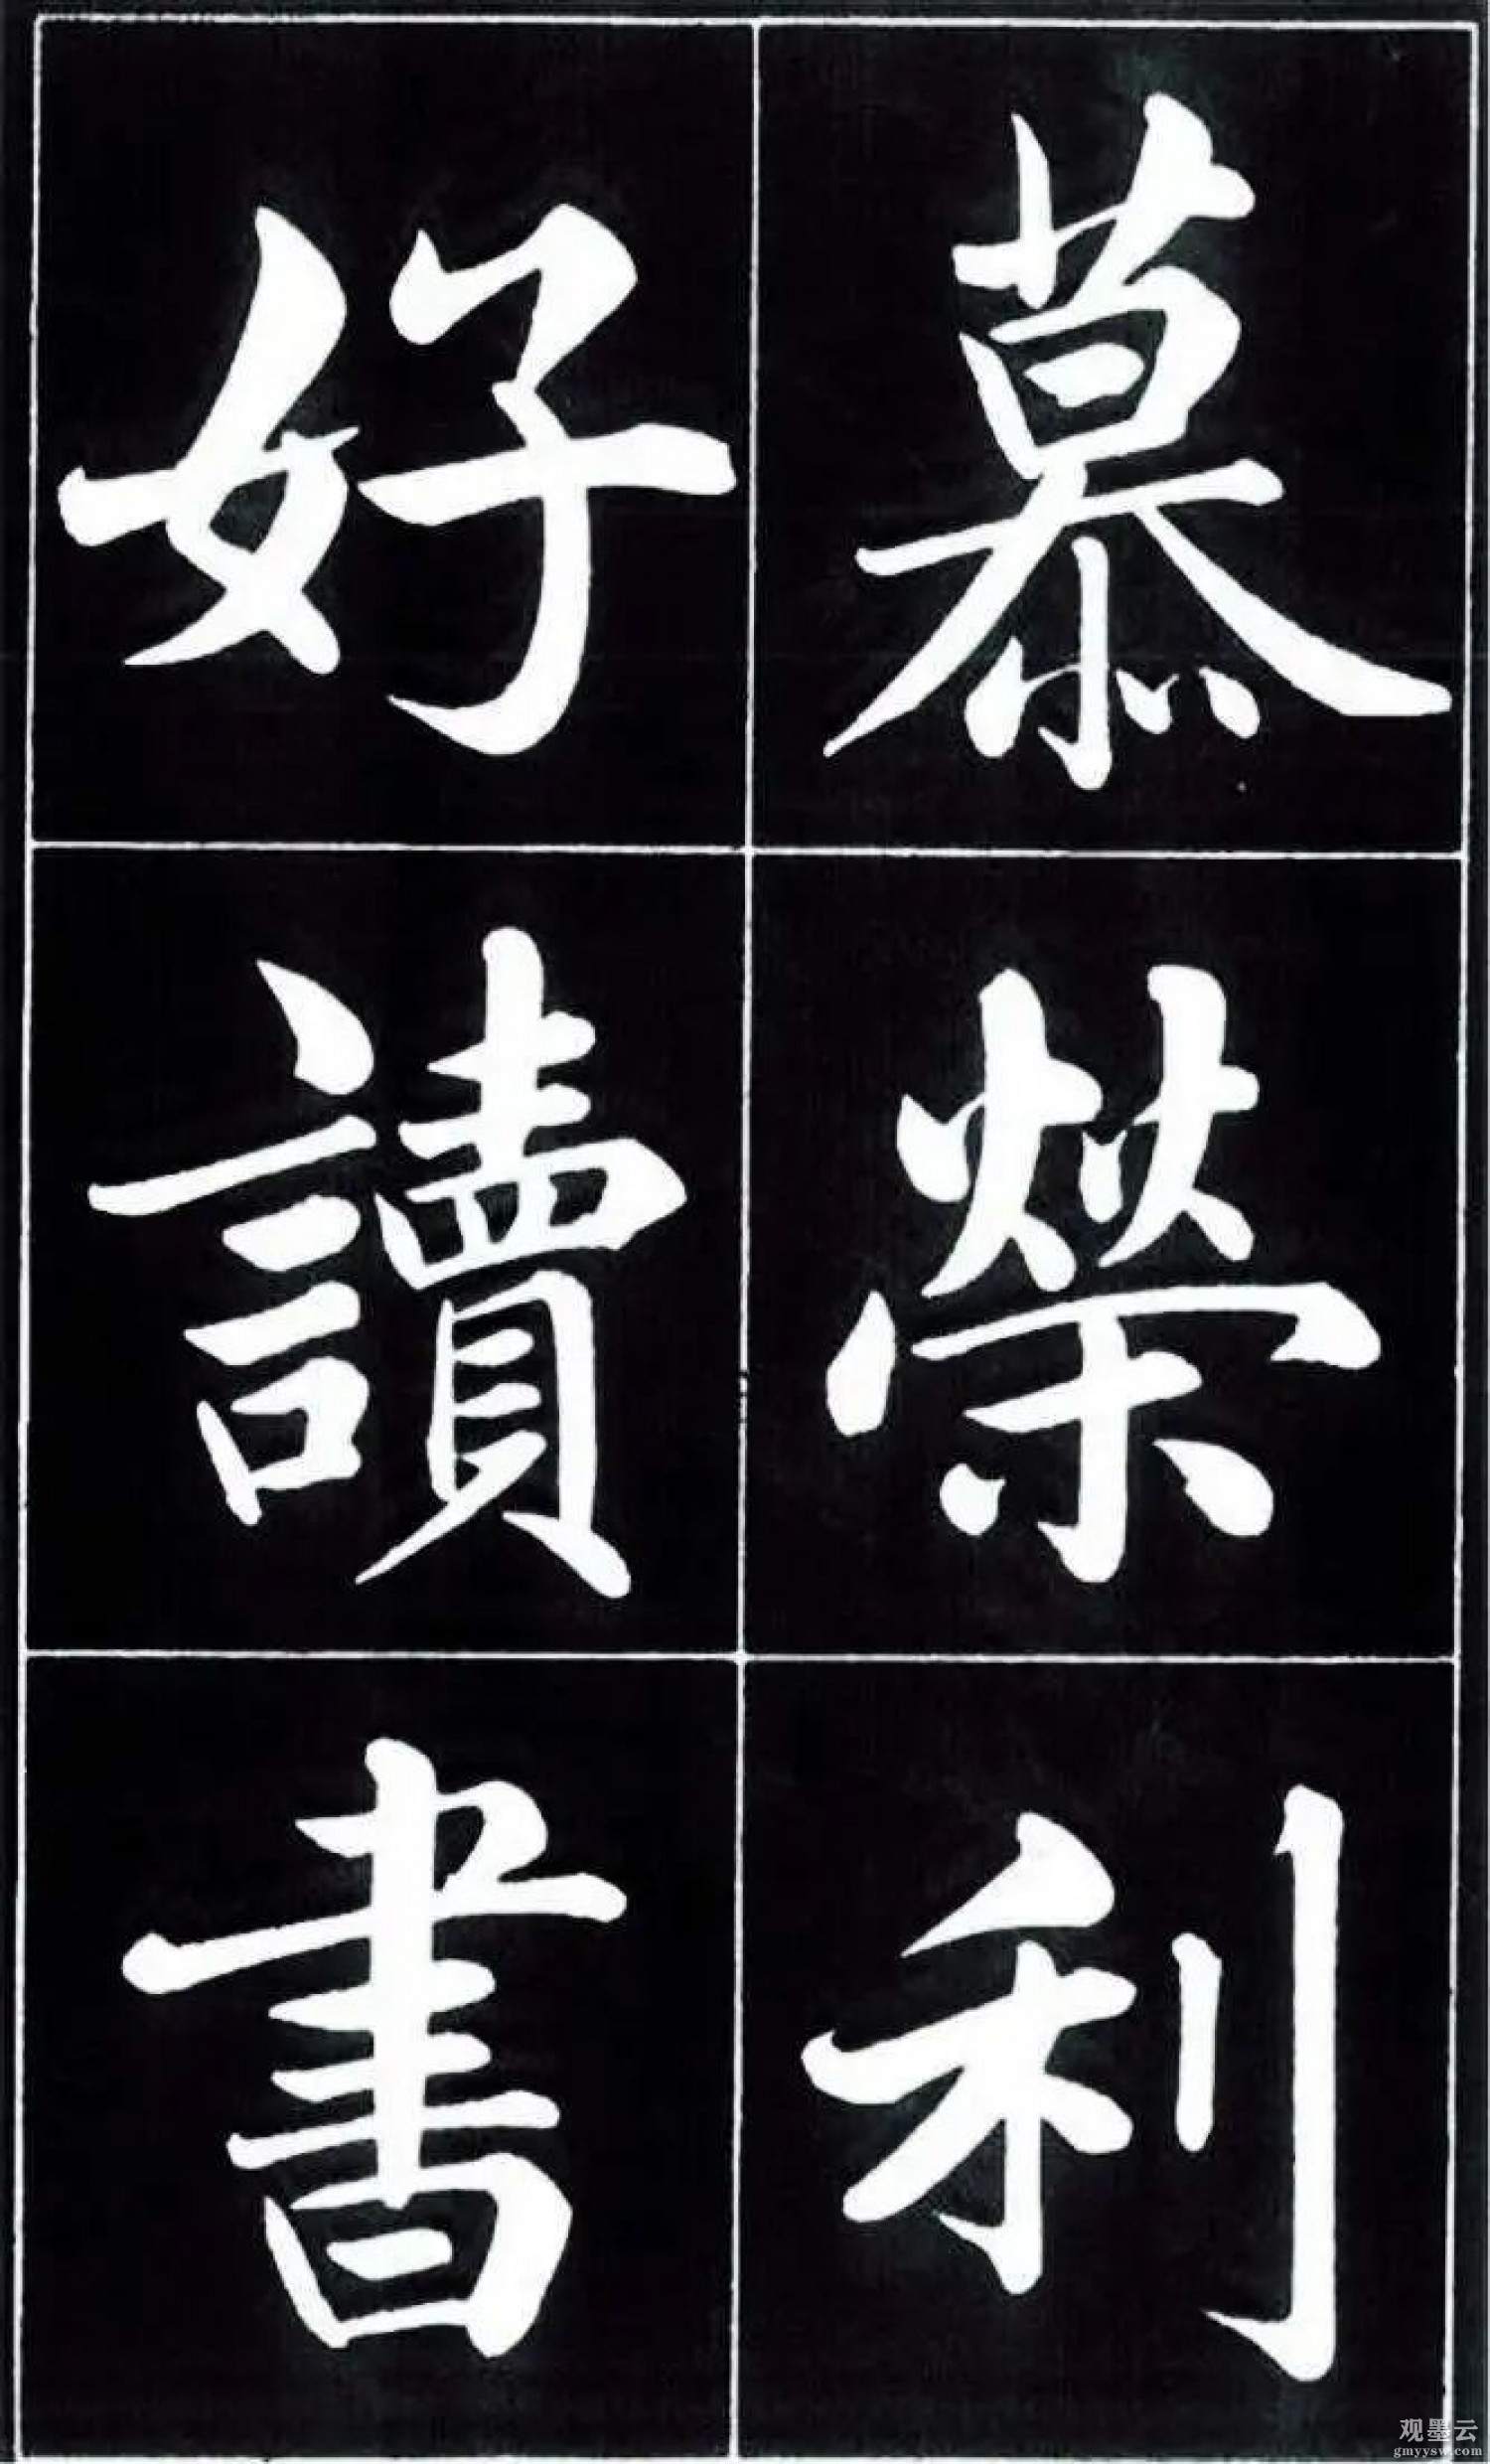 慕榮利
好讀書
观墨云
gmyysw.com